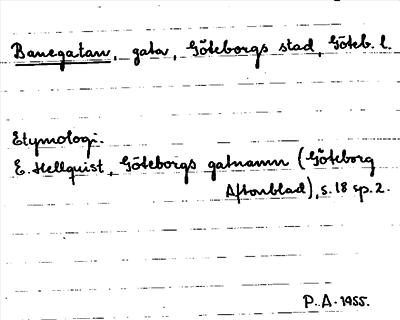 Banegatan, gata, Göteborgs stad, Göteb. l.
Etymologi.
E. Hellquist, Göteborgs gatnamn (Göteborg
Aftonblad), s. 18 sp. 2.
P. A. 1955.